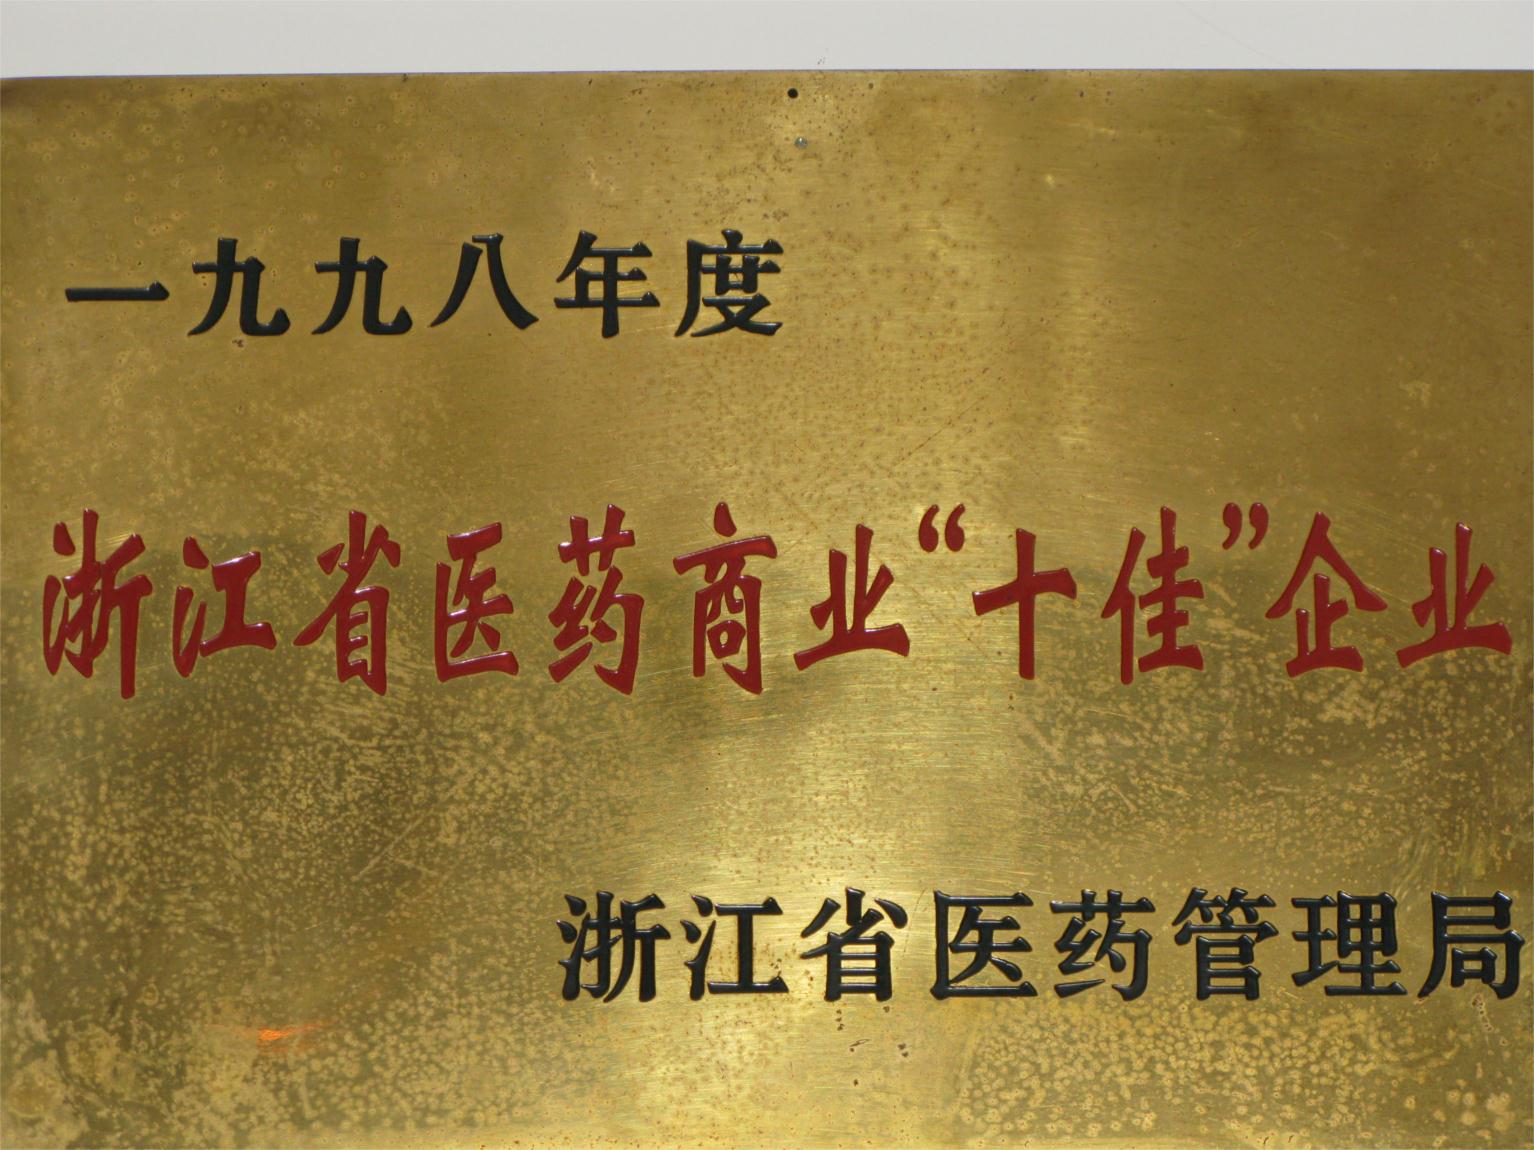 一九九八年度
浙江省医药商业“十佳”企业
浙江省医药管理局